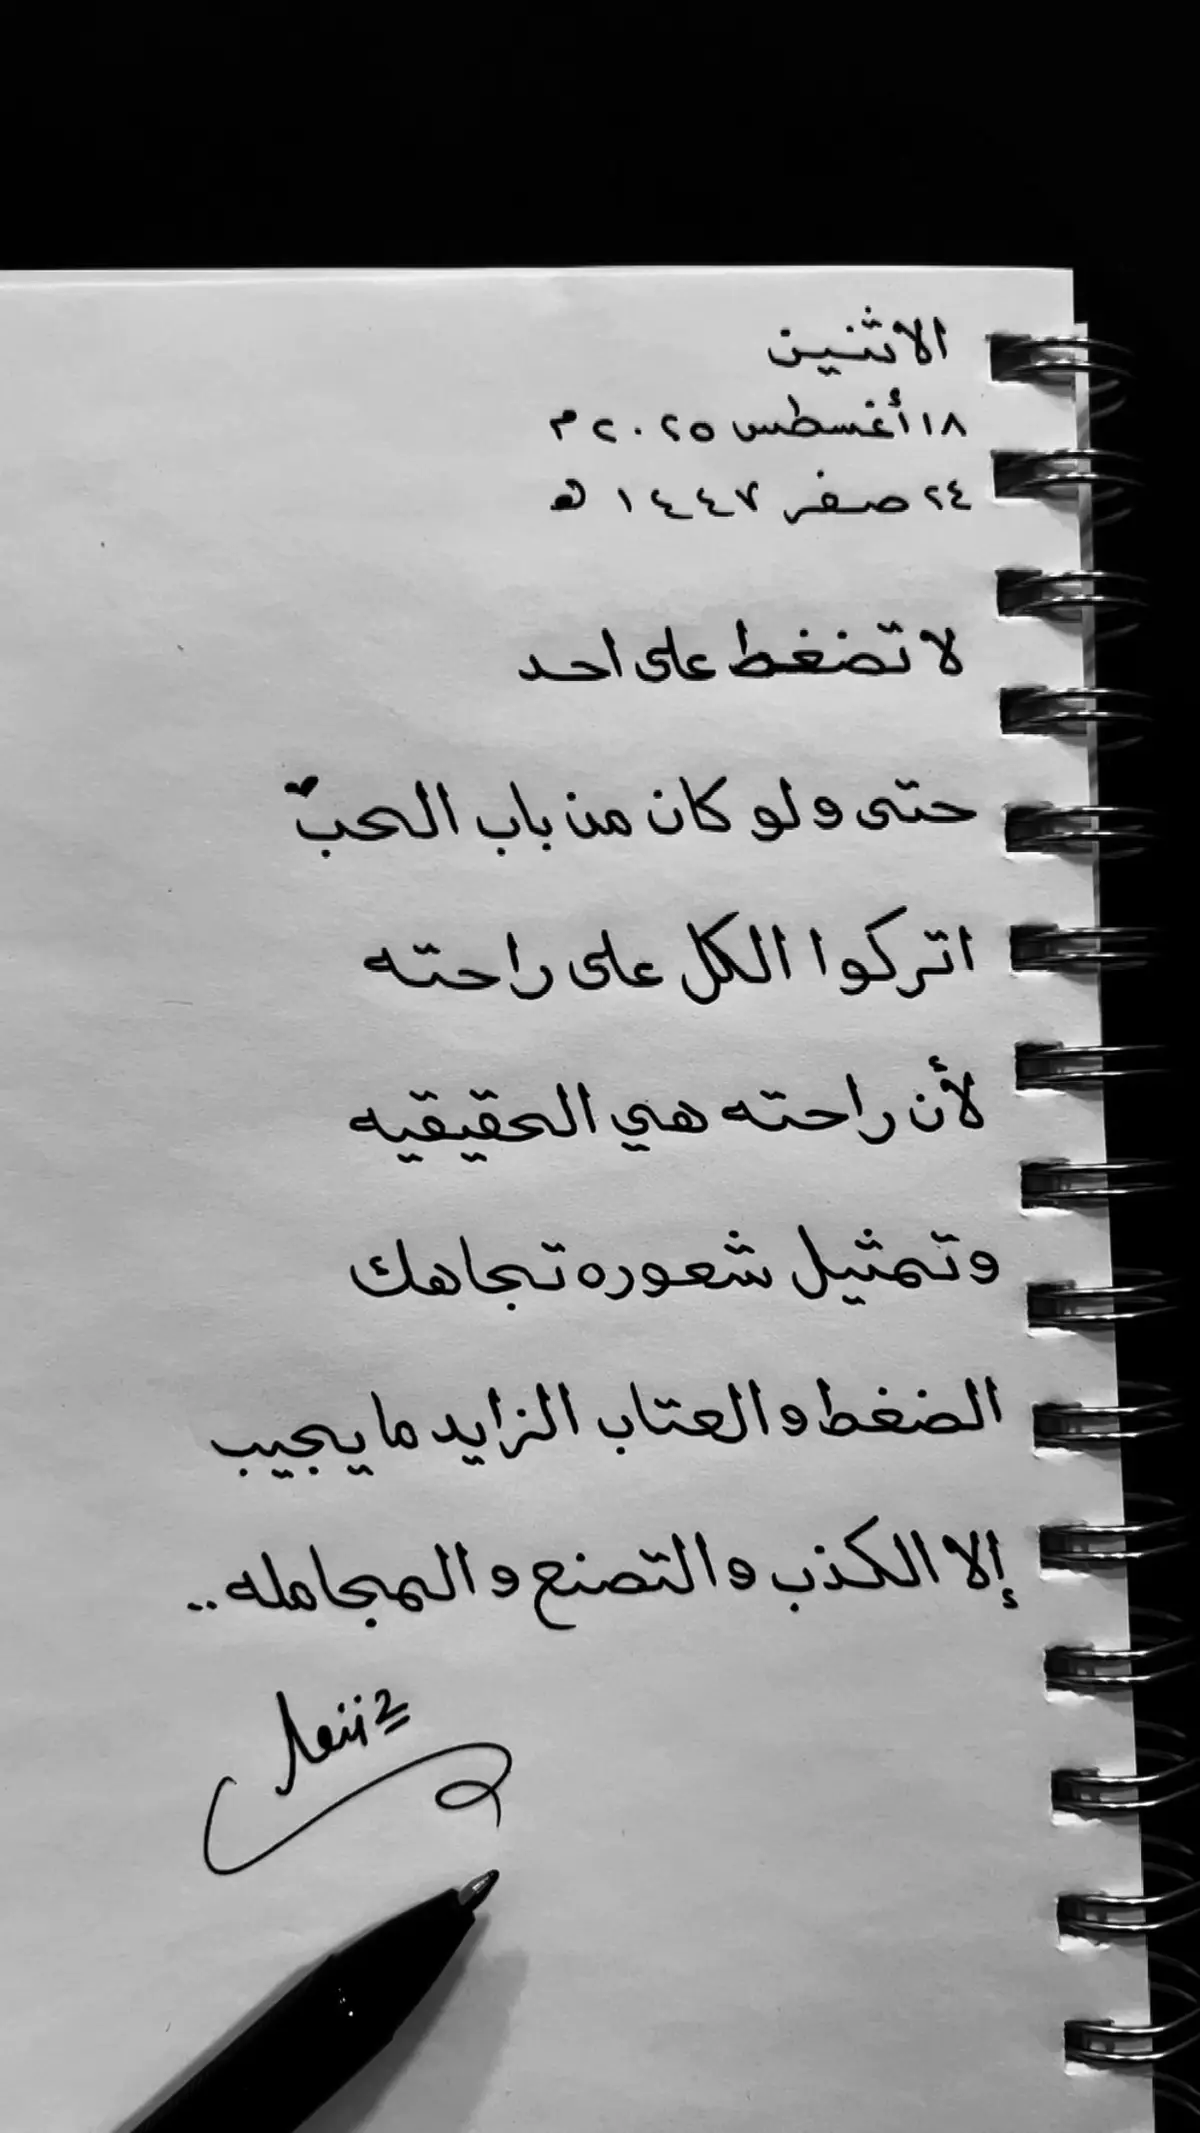 الاثنين
١٨ أغسطس ٢٠٢٥ م
٢٤ صفر ١٤٤٧ هـ
لا تضغط على احد
حتى ولو كان من باب الحب
اتركوا الكل على راحته
لأن راحته هي الحقيقيه
وتمثيل شعوره تجاهك
الضغط والعتاب الزايد ما يجيب
إلا الكذب والتصنع والمجامله..